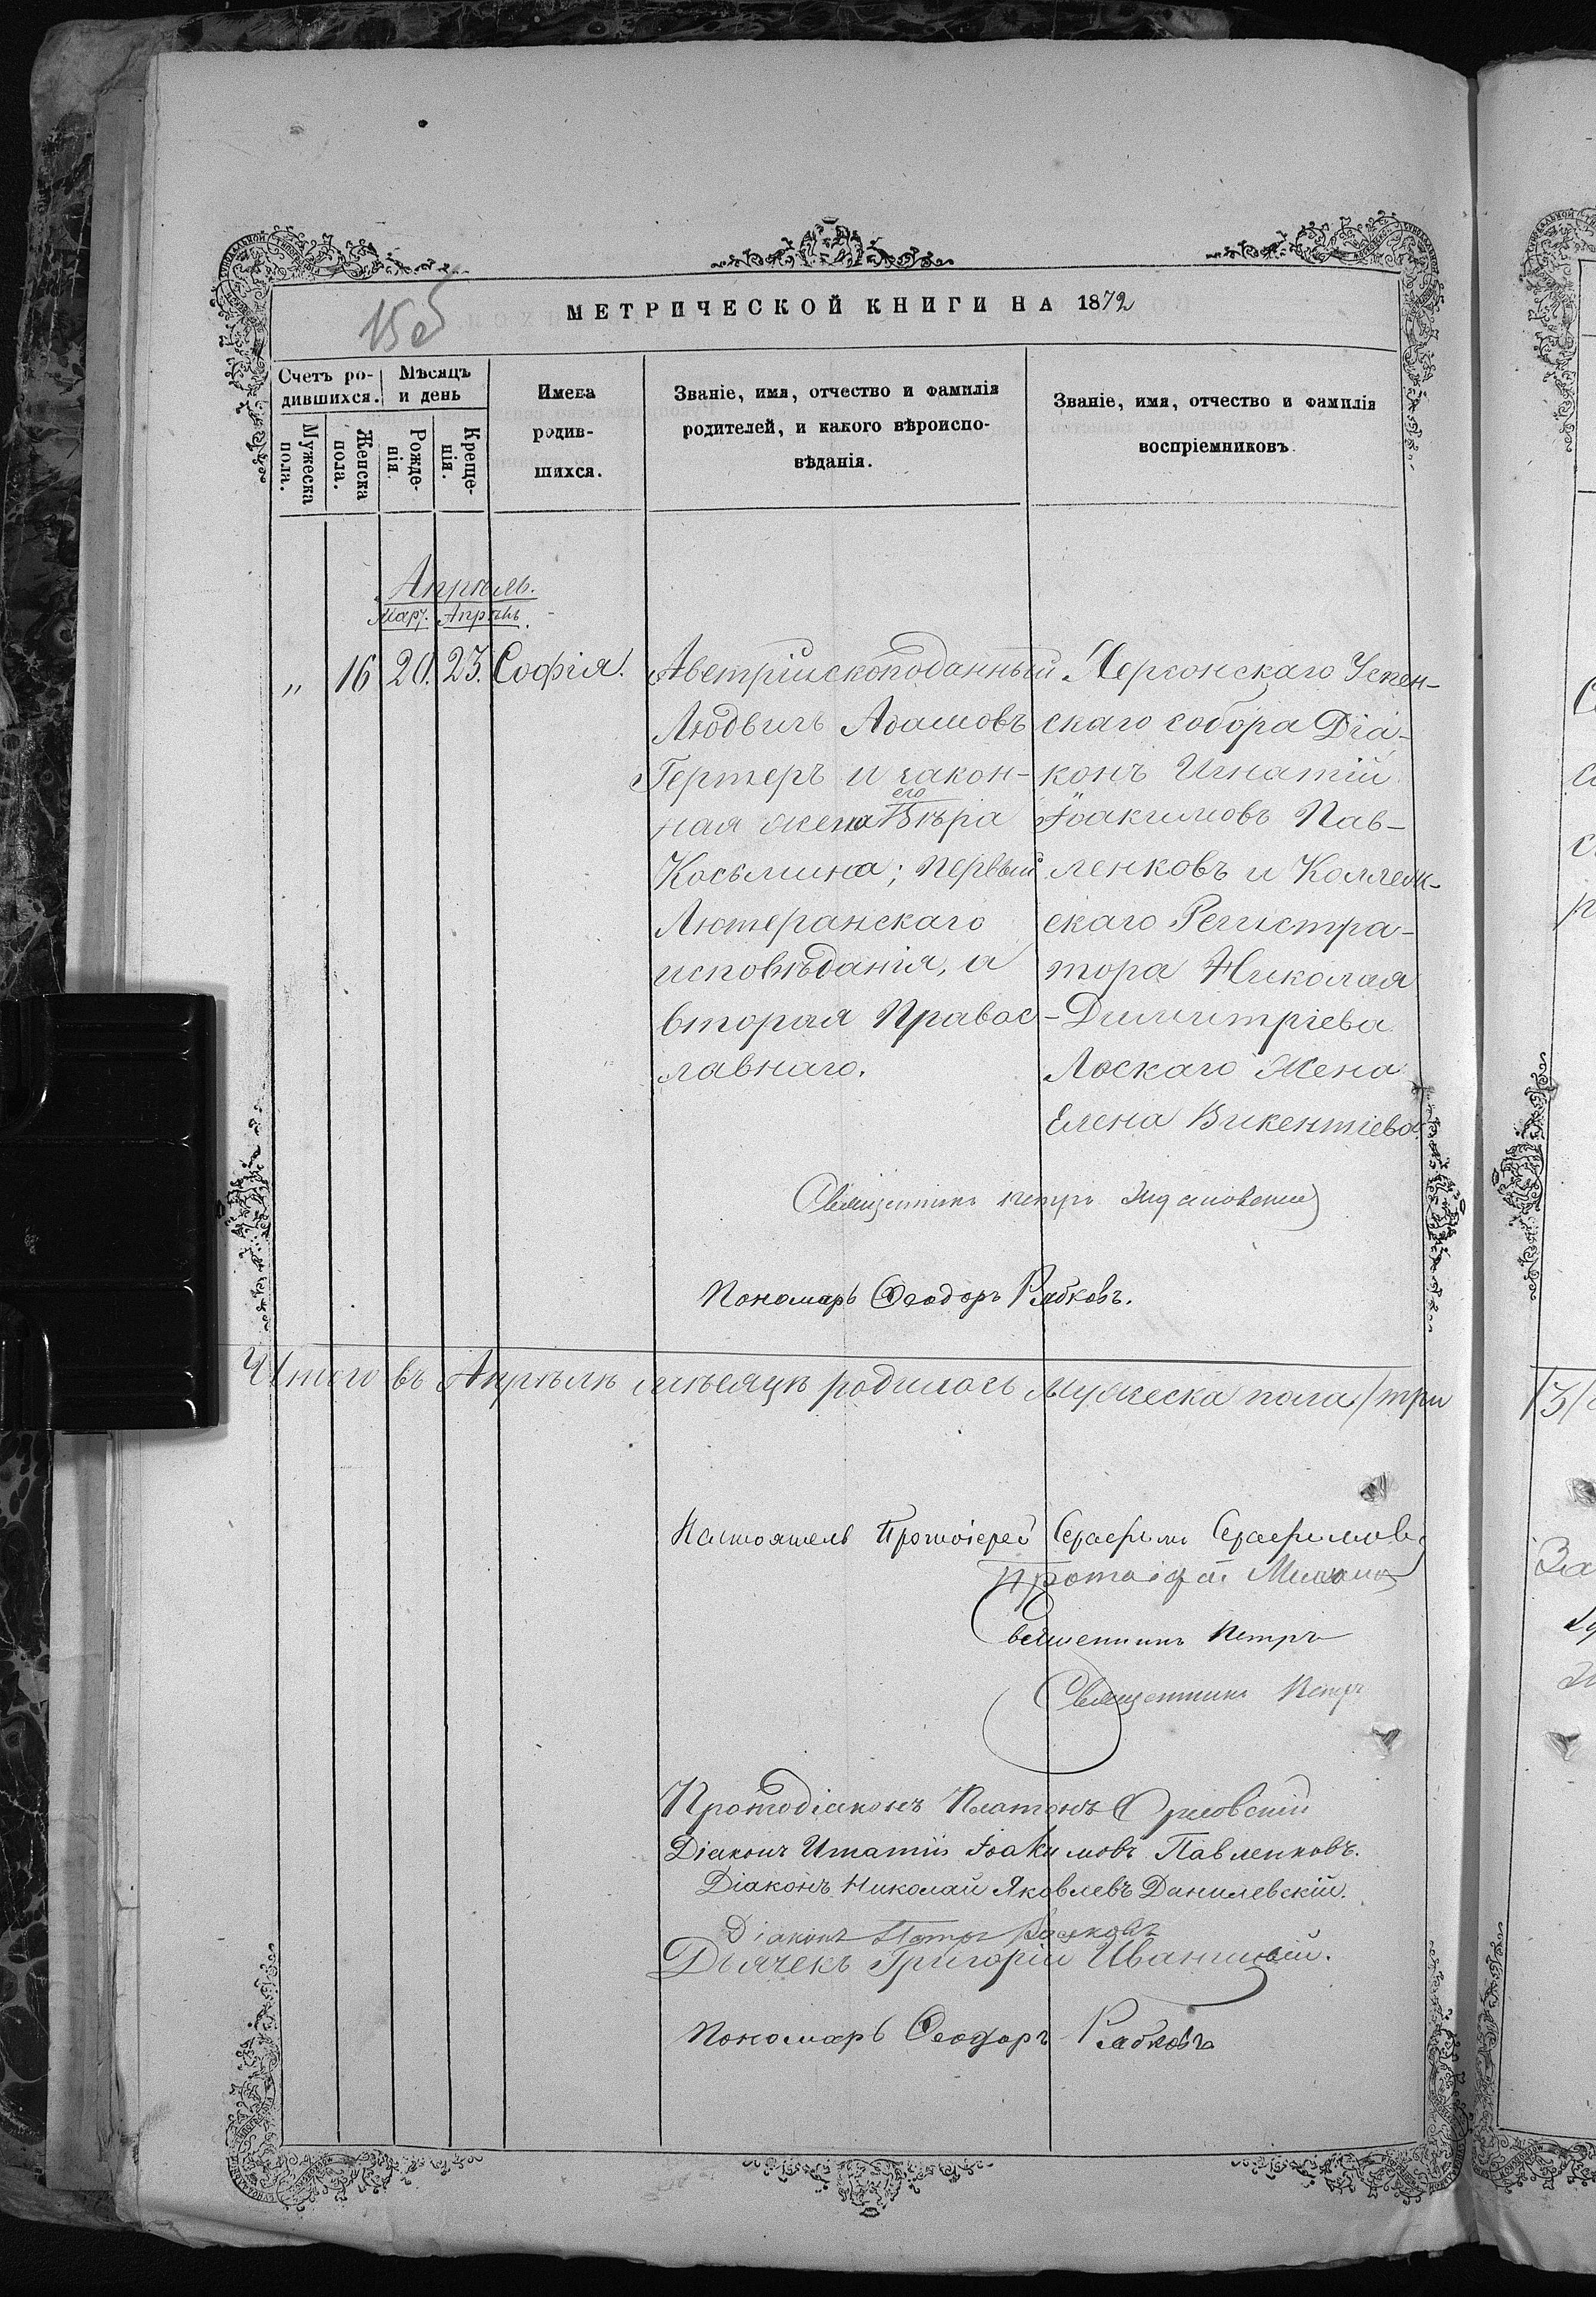 15об
МЕТРИЧЕСКОЙ КНИГИ НА 1872
Счетъ ро-
дившихся.
Мѣсяцъ
и день
Мужеска
пола.
Женска
пола.
Рожде-
нія.
Креще-
нія.
Имена
родив-
шихся.
Званіе, имя, отчество и фамилія
родителей, и какого вѣроиспо-
вѣданія.
Званіе, имя, отчество и фамилія
воспріемниковъ.
Апрѣль.
Мар. Апрѣль.
„ 16 20. 23. Софія.
Австрійскоподанный
Людвигъ Адамовъ
Гертеръ и закон-
его
ная жена Вѣра
Косьмина; первый
Лютеранскаго
исповѣданія, а
вторая Правос-
лавнаго.
Херсонскаго Успен-
скаго собора Діа-
конъ Игнатій
Іоакимовъ Пав-
ленковъ и Коллеж-
скаго Регистра-
тора Николая
Димитріева
Лоскаго жена
Елена Викентіева.
Священникъ Петръ
Пономарь Ѳеодоръ Рябковъ.
Итого въ Апрѣлѣ мѣсяцѣ родилось мужеска пола /три
/3/
Настоятель Протоіерей Серафимъ Серафимовъ
Протоіерей
Священникъ Петръ
Священникъ Петръ
Протодіаконъ Платонъ Орловскій
Діаконъ Игнатій Іоакимовъ Павленковъ.
Діаконъ Николай Яковлевъ Данилевскій.
Діаконъ Петръ
Дьячекъ Григорій
Пономарь Ѳеодоръ Рябковъ